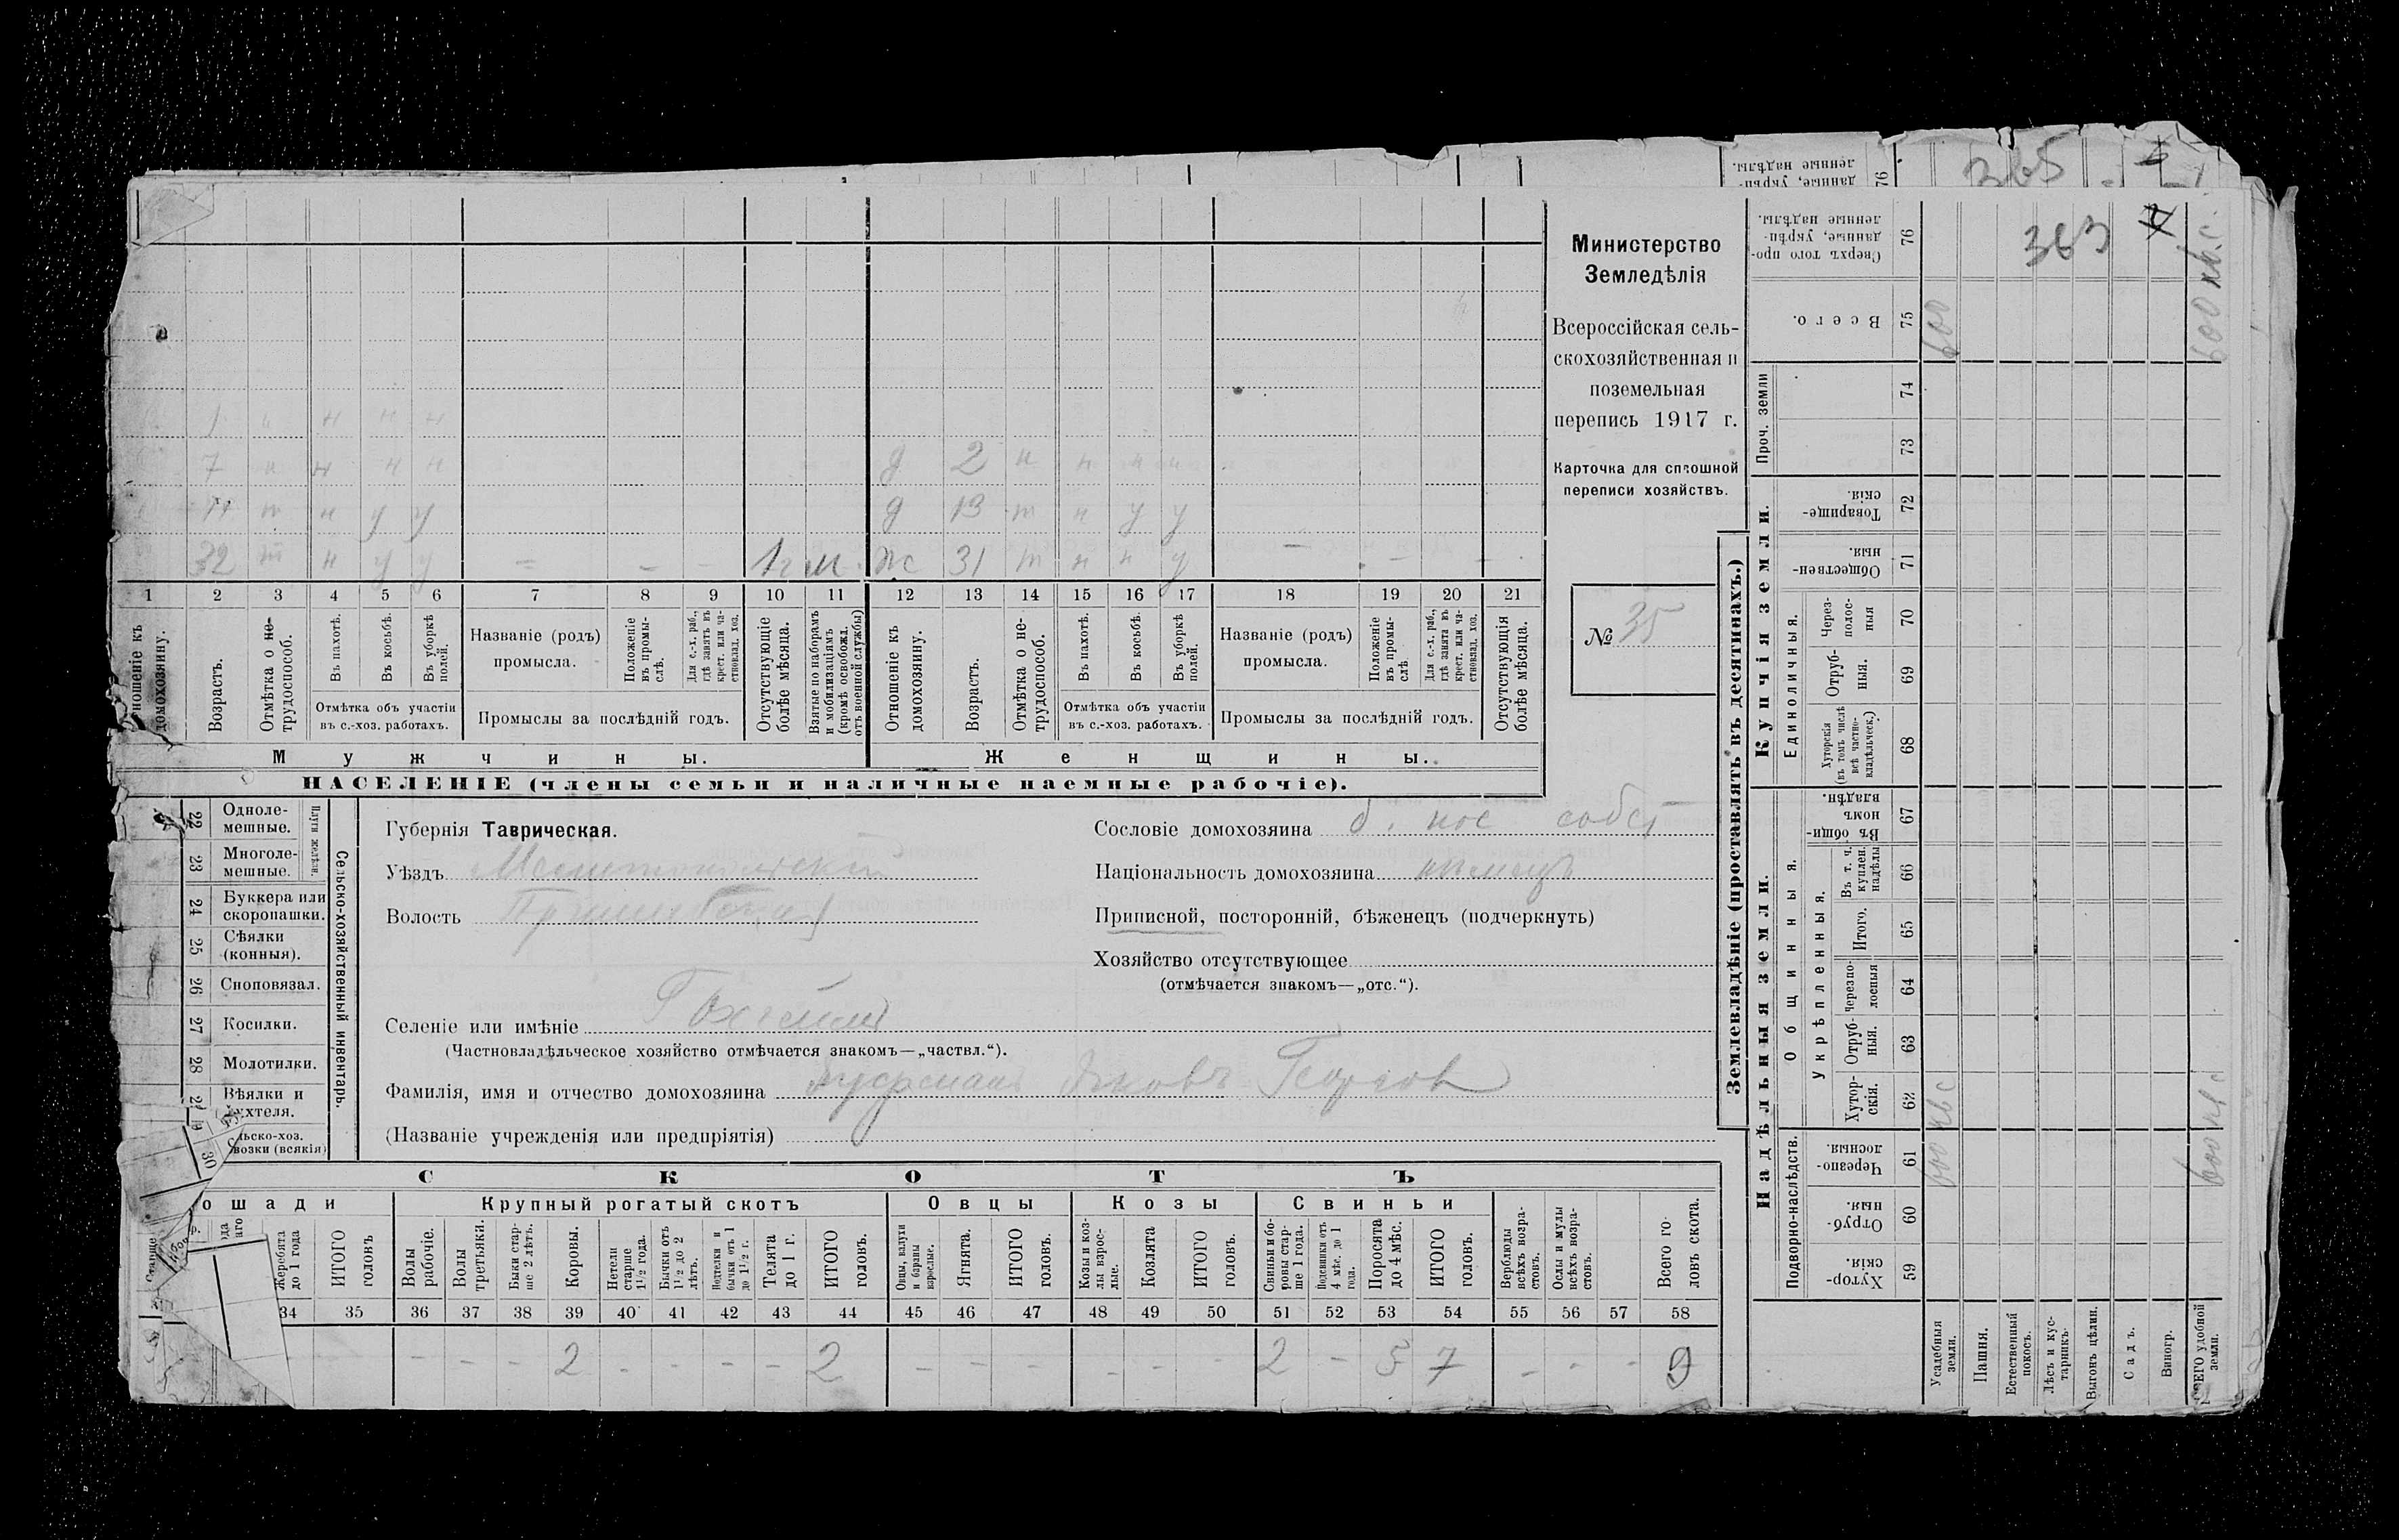 365
Министерство
Земледѣлія
Всероссійская сель-
скохозяйственная и
поземельная
перепись 1917 г.
Карточка для сплошной
переписи хозяйствъ.
№ 35
1 н н н н
7 н н н н д 2 н н н н
11 т н у у д 13 т н у у
32 т н у у – – – 1 г м. ж 31 т н н у – – –
1 2 3 4 5 6 7 8 9 10 11 12 13 14 15 16 17 18 19 20 21
Отношеніе къ домохозяину.
Возрастъ.
Отмѣтка о не-трудоспособ.
Въ пахотѣ.
Въ косьбѣ.
Въ уборкѣ полей.
Отмѣтка объ участіи въ с.-хоз. работахъ.
Названіе (родъ) промысла.
Положеніе въ промы-слѣ.
Для с.-х. раб., гдѣ занятъ въ крест. или ча-стновлад. хоз.
Промыслы за послѣдній годъ.
Отсутствующіе болѣе мѣсяца.
Взятые по наборамъ и мобилизаціямъ (кромѣ освобожд. отъ военной службы)
Отношеніе къ домохозяину.
Возрастъ.
Отмѣтка о не-трудоспособ.
Въ пахотѣ.
Въ косьбѣ.
Въ уборкѣ полей.
Отмѣтка объ участіи въ с.-хоз. работахъ.
Названіе (родъ) промысла.
Положеніе въ промы-слѣ
Для с.-х. раб., гдѣ занята въ крест. или ча-стновлад. хоз.
Промыслы за послѣдній годъ.
Отсутствующія болѣе мѣсяца.
Мужчины.
Женщины.
НАСЕЛЕНІЕ (члены семьи и наличные наемные рабочіе).
22 Одноле-мешные.
23 Многоле-мешные.
Плуги желѣзн.
24 Буккера или скоропашки.
25 Сѣялки (конныя).
26 Сноповязал.
27 Косилки.
28 Молотилки.
Вѣялки и
30
Сельско-хозяйственный инвентарь.
Губернія Таврическая.
Уѣздъ Мелитопольскій
Волость Пришибск
Селеніе или имѣніе Гохгеймъ
(Частновладѣльческое хозяйство отмѣчается знакомъ—„частвл.“).
Фамилія, имя и отчество домохозяина Яковъ Георгов
(Названіе учрежденія или предпріятія)
Сословіе домохозяина б. пос собст
Національность домохозяина нѣмецъ
Приписной, посторонній, бѣженецъ (подчеркнуть)
Хозяйство отсутствующее
(отмѣчается знакомъ—„отс.“).
СКОТЪ
ошади
Крупный рогатый скотъ
Овцы
Козы
Свиньи
Жеребята до 1 года
ИТОГО головъ
Волы рабочіе.
Волы третьяки.
Быки стар-ше 2 лѣтъ.
Коровы.
Нетели старше 1½ года.
Бычки отъ 1½ до 2 лѣтъ.
Нетелки и бычки отъ 1 до 1½ г.
Телята до 1 г.
ИТОГО головъ.
Овцы, валухи и бараны взрослые.
Ягнята.
ИТОГО головъ.
Козы и коз-лы взрос-лые.
Козлята
ИТОГО головъ.
Свиньи и бо-ровы стар-ше 1 года.
Подсвинки отъ 4 мѣс. до 1 года.
Поросята до 4 мѣс.
ИТОГО головъ.
Верблюды всѣхъ возра-стовъ.
Ослы и мулы всѣхъ возра-стовъ.
Всего го-ловъ скота.
34 35 36 37 38 39 40 41 42 43 44 45 46 47 48 49 50 51 52 53 54 55 56 57 58
– – – 2 – – – – 2 – – – – – – 2 – 5 7 – – – 9
Землевладѣніе (проставлять въ десятинахъ.)
Купчія земли.
Надѣльныя земли.
Сверхъ того про-данные, укрѣп-ленные надѣлы. 76 363
Всего. 75 600 600 кв.с.
Проч. земли 74
73
Товарище-скія. 72
Обществен-ныя. 71
Единоличныя.
Через-полос-ныя 70
Отруб-ныя. 69
Хуторскія (въ томъ числѣ всѣ частно-владѣльческ.) 68
Общинныя.
Въ общи-номъ владѣн. 67
Укрѣпленныя.
Въ т. ч. куплен. надѣлы 66
Итого. 65
Черезпо-лосныя 64
Отруб-ныя. 63
Хутор-скія. 62
Подворно-наслѣдств.
Черезпо-лосныя. 61 600 кв с 600 кв с
Отруб-ныя. 60
Хутор-скія. 59
Усадебныя земли.
Пашня.
Естественный покосъ.
Лѣсъ и кус-тарникъ.
Выгонъ цѣлин.
Садъ.
Виногр.
ВСЕГО удобной земли.